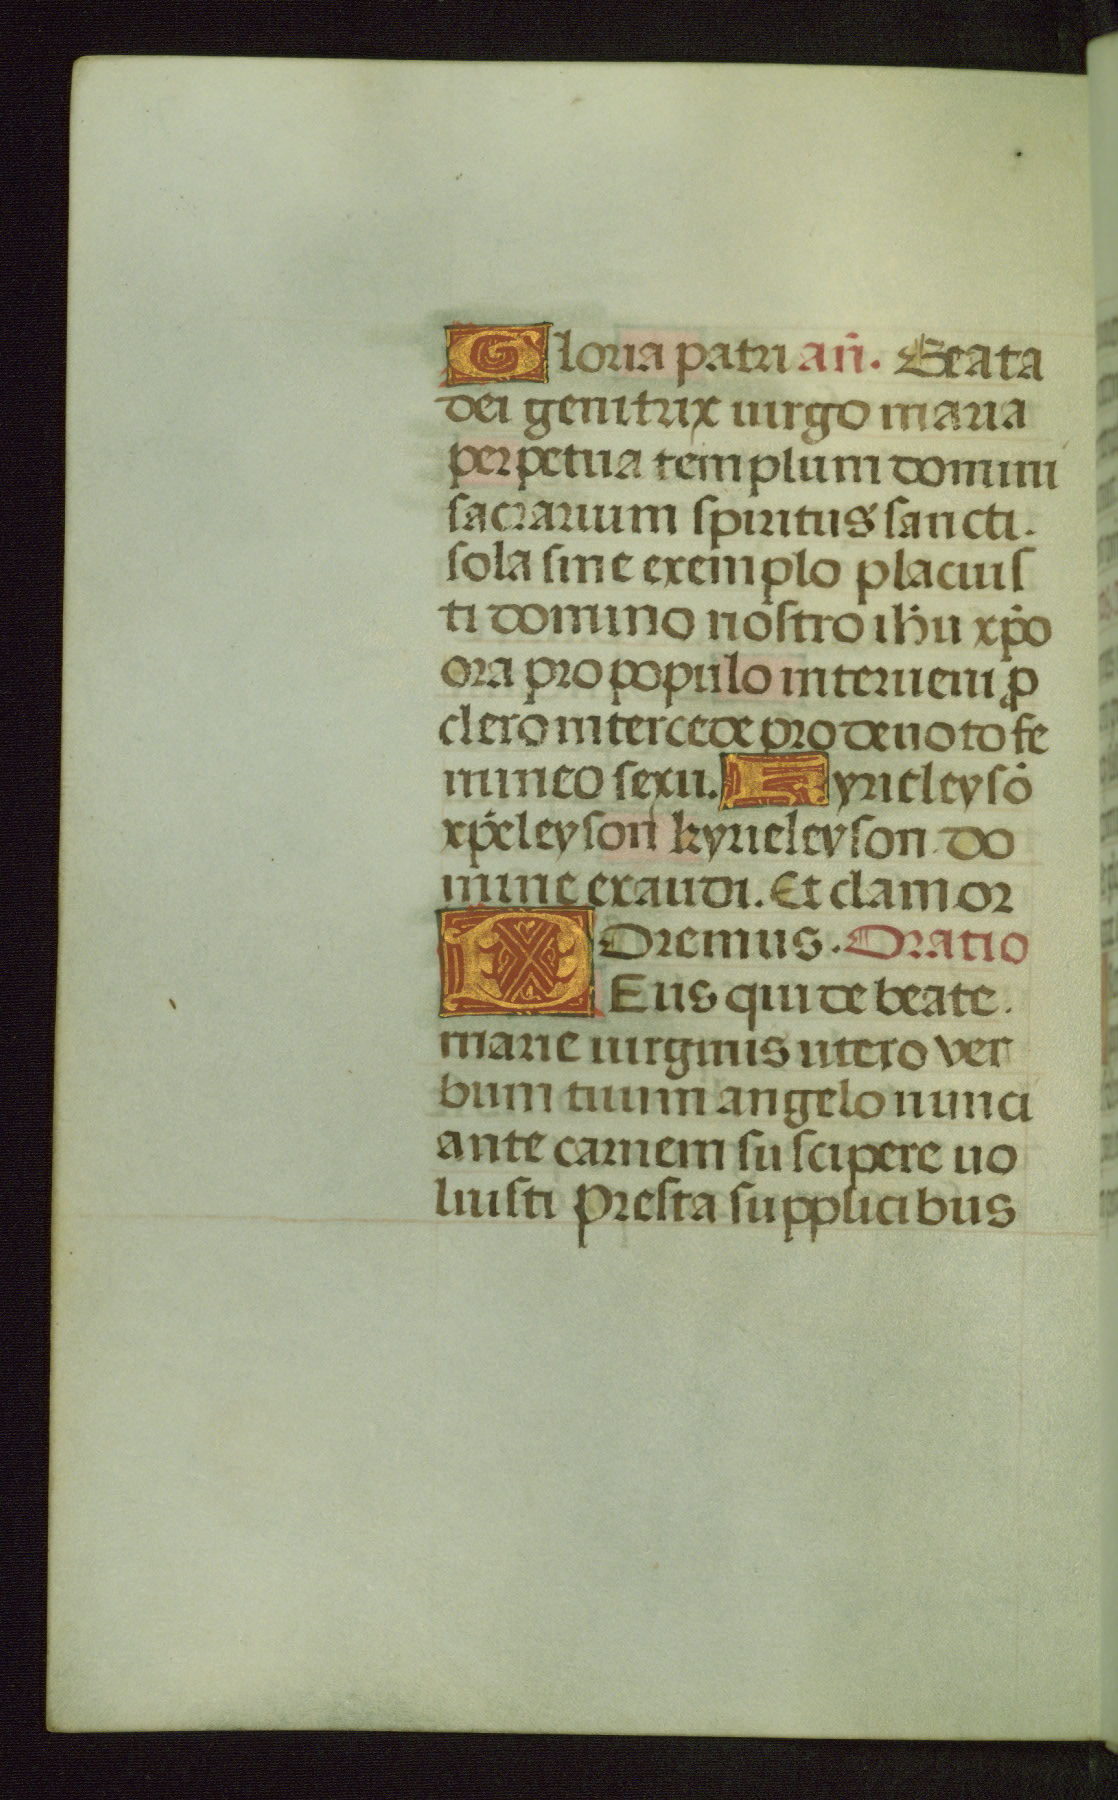 Gloria patri añ. Beata
dei genitrix uirgo maria
perpetua templum domini
sacrarium spiritus sancti.
sola sine exemplo placuis
ti domino nostro ihu xp̄o
ora pro populo interueni ꝓ
clero intercede pro deuoto fe
mineo sexu. Kyrieleysō
xp̄eleyson kyrieleyson do
mine exaudi. Et clamor
Oremus. Oratio
DEus qui de beate.
marie uirginis utero ver
bum tuum angelo nunci
ante carnem suscipere uo
luisti Presta supplicibus